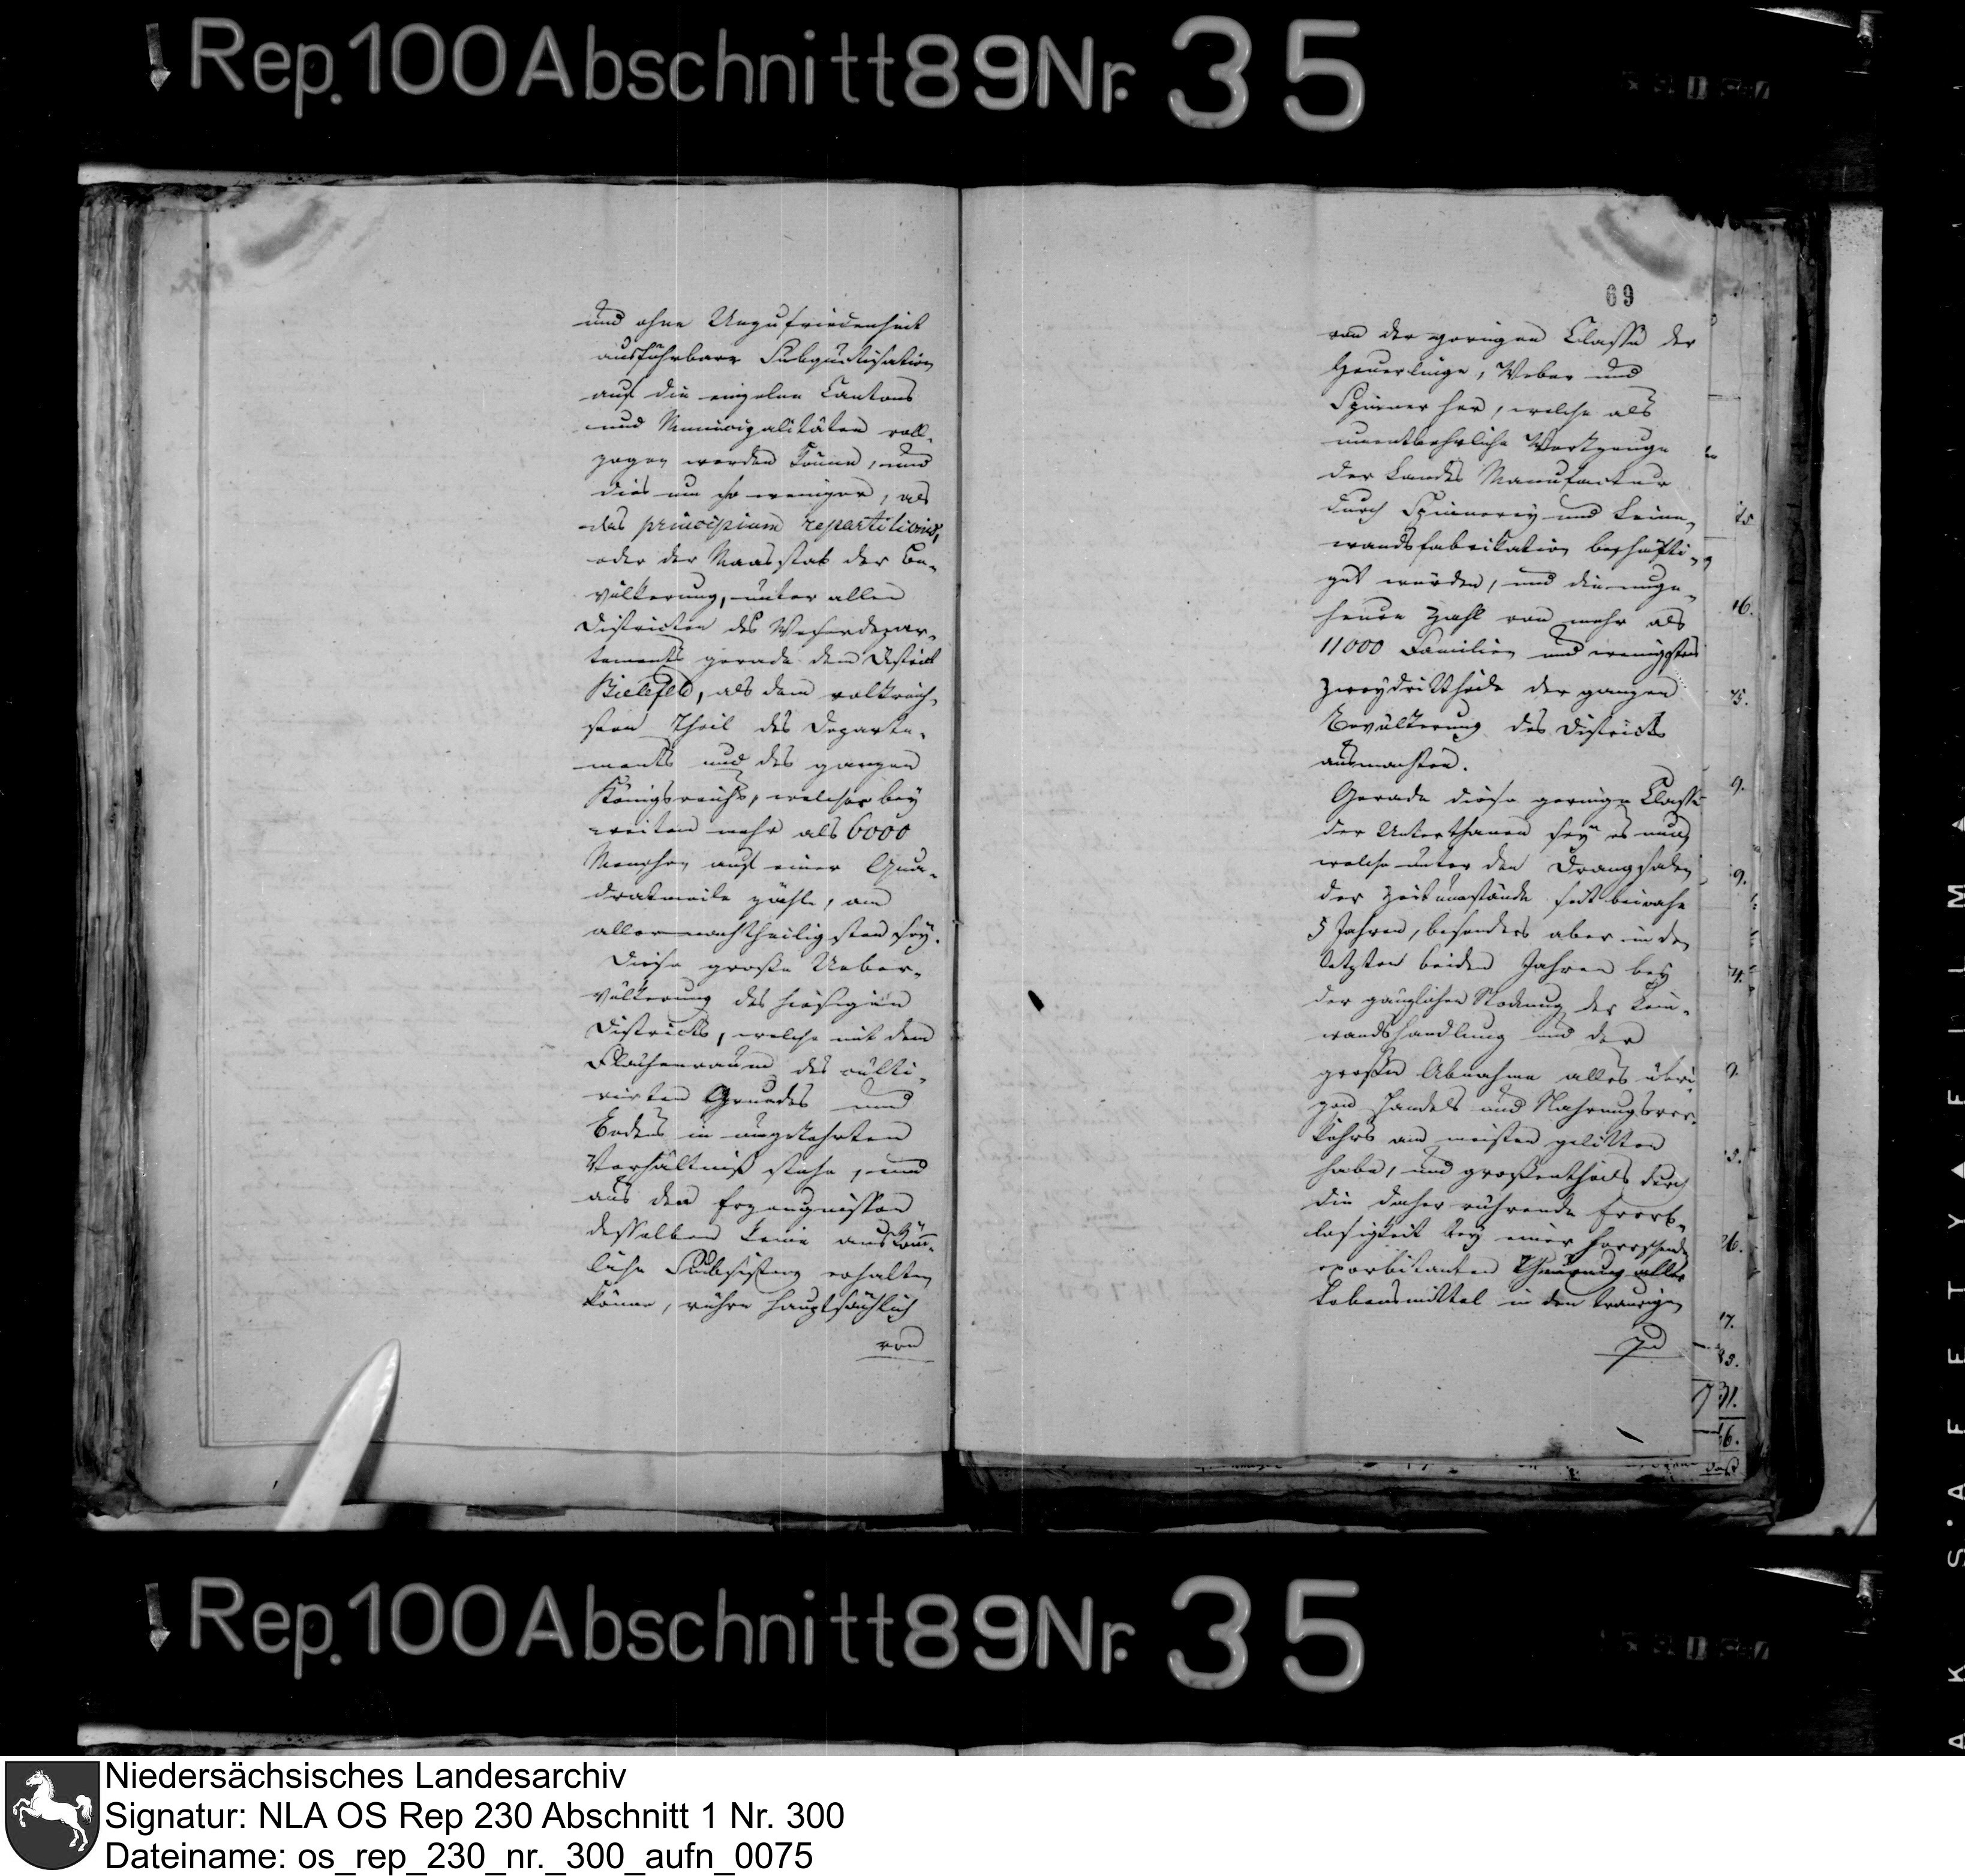 Rep. 100 Abschnitt 89 Nr. 35
und ohne Unzufriedenheit
ausführbare Subquotisation
auf die einzelnen Cantons
und Municipalitäten voll-
zogen werden könne, und
dies um so weniger, als
das principium repartitionis,
oder der Maasstab der Be-
völkerung, unter allen
Districten des Weserdepar-
tements gerade dem District
Bielefeld, als dem volkreich-
sten Theil des Departe-
ments und des ganzen
Königsreichs, welcher bey
weiten mehr als 6000
Menschen auf einer Qua-
dratmeile zähle, am
allernachtheiligsten sey.
Diese große Ueber-
völkerung des hiesigen
Districts, welche mit dem
Flächenraum des culti-
virten Grundes und
Bodens in umgekehrten
Verhältniß stehe, und
aus den Erzeugnissen
desselben keine auskömm-
liche Subsistenz erhalten
könne, rühre hauptsächlich
von
69
von der geringen Classe der
Heuerlinge, Weber und
Spinner her, welche als
unentbehrliche Werkzeuge
der Landes Manufactur
durch Spinnerey und Leine-
wandsfabrikation beschäfti-
get würden, und die unge-
heure Zahl von mehr als
11000 Familien und wenigstens
zweydrittheile der ganzen
Bevölkerung des Districts
ausmachten.
Gerade diese geringe Classe
der Unterthanen sey es nun,
welche unter den Drangsalen
der Zeitumstände seit beinahe
5 Jahren, besonders aber in den
letzten beiden Jahren bey
der gänzlichen Stockung des Lein-
wandshandlung und der
großen Abnahme alles übri-
gen Handels und Nahrungsver-
kehrs am meisten gelitten
habe, und großentheils durch
die daher rührende Brod-
losigkeit bey einer herrschenden
exorbitanten Theurung aller
Lebensmittel in den traurigen
Rep. 100 Abschnitt 89 Nr. 35
Niedersächsisches Landesarchiv
Signatur: NLA OS Rep 230 Abschnitt 1 Nr. 300
Dateiname: os_rep_230_nr._300_aufn_0075